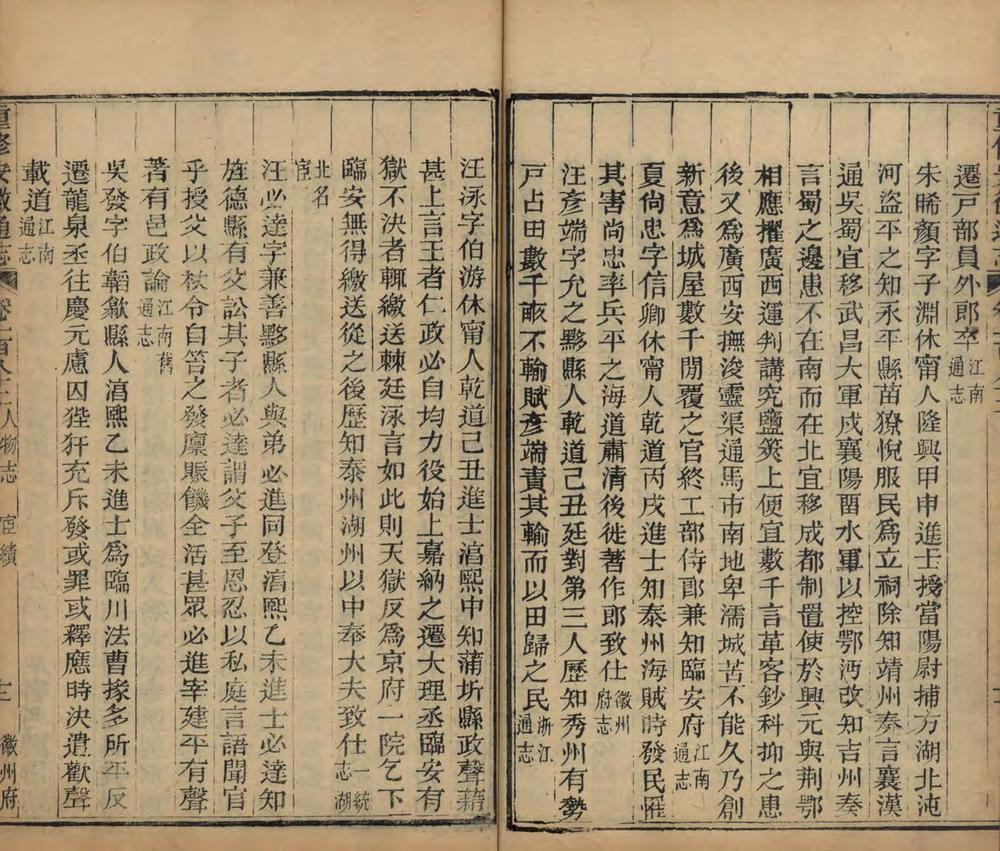 遷戸部員外郎卒江南通志
朱晞顏字子淵休甯人隆興甲申進士授當陽尉捕方湖北沌
河盜平之知永平縣苗獠悅服民爲立祠除知靖州奏言襄漢
通吳蜀宜移武昌大軍戍襄陽留水軍以控鄂沔改知吉州奏
言蜀之邊患不在南而在北宜移成都制置使於興元與荆鄂
相應擢廣西運判講究鹽筴上便宜數千言革客鈔科抑之患
後又爲廣西安撫浚靈渠通馬市南地卑濡城苦不能久乃創
新意爲城屋數千閒覆之官終工部侍郎兼知臨安府江南通志
夏尙忠字信卿休甯人乾道丙戌進士知泰州海賊時發民罹
其害尙忠率兵平之海道肅清後徙著作郎致仕徽州府志
汪彥端字允之黟縣人乾道己丑廷對第三人歷知秀州有勢
戸占田數千畝不輸賦彥端責其輸而以田歸之民浙江通志
汪泳字伯游休甯人乾道己丑進士淳熙中知蒲圻縣政聲藉
甚上言王者仁政必自均力役始上嘉納之遷大理丞臨安有
獄不決者輒繳送棘廷泳言如此則天獄反爲京府一院乞下
臨安無得繳送從之後歷知泰州湖州以中奉大夫致仕一統志湖
北名宦
汪必達字兼善黟縣人與弟必進同登淳熙乙未進士必達知
旌德縣有父訟其子者必達謂父子至恩忍以私庭言語聞官
乎授父以杖令自笞之發廩賑饑全活甚眾必進宰建平有聲
著有邑政論江南舊通志
吳發字伯韜歙縣人淳熙乙未進士爲臨川法曹掾多所平反
遷龍泉丞往慶元慮囚狴犴充斥發或罪或釋應時決遣歡聲
載道江南通志
重修安徽通志 卷一百八十二 人物志 宦績 徽州府